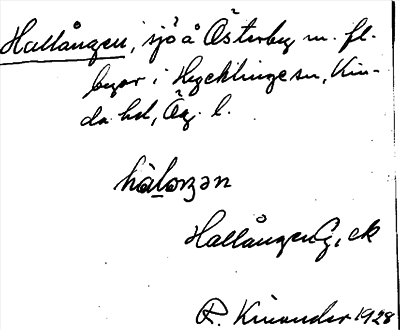 Hallången, sjö å Österby m. fl.
byar i Hycklinge sn, Kin-
da hd, Ög. l.
hàloŋən
Hallången G, ek
R. Kinander 1928